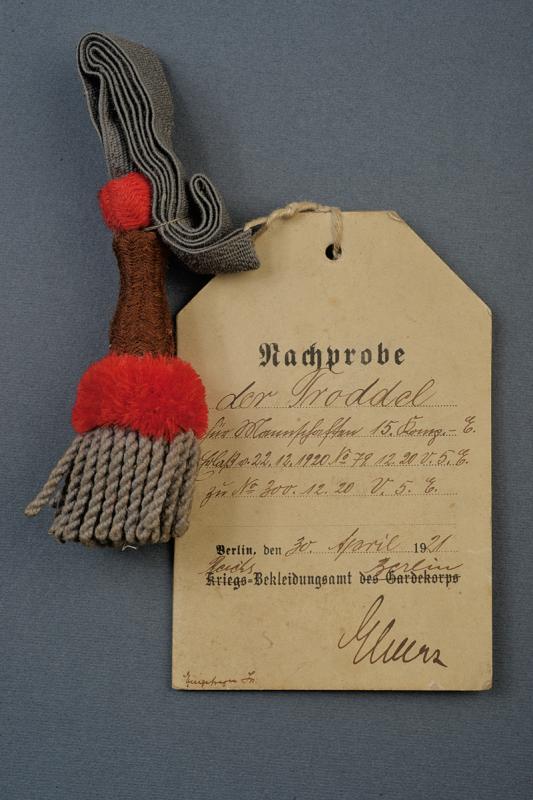 Nachprobe
der Troddel
für Mannschaften 15. Komp. - E.
v. 22.12.1920 № 79 12.20 V.5.E.
zu № 300. 12. 20 V. 5. E.
Berlin, den 30. April 1921
Reichs Berlin
Kriegs=Bekleidungsamt des Gardekorps